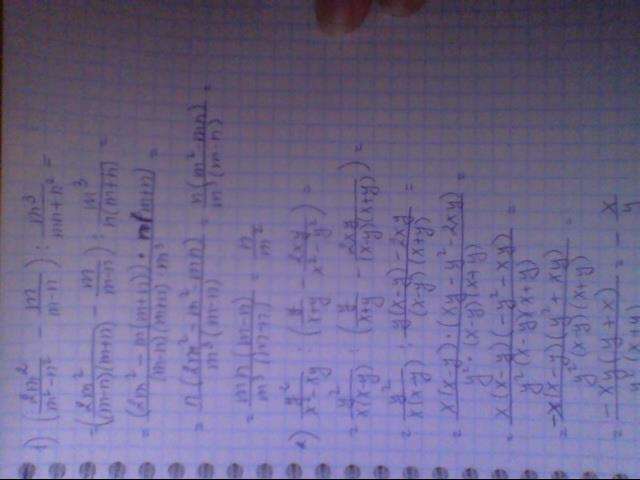 1) (2m²/(m²-n²) - m/(m-n)) : m³/(mn+n²) =
= (2m²/((m-n)(m+n)) - m/(m-n)) : m³/(n(m+n)) =
= (2m² - m(m+n)) · n(m+n) / ((m-n)(m+n) m³) =
= n(2m² - m² - mn) / (m³(m-n)) = n(m² - mn) / (m³(m-n)) =
= mn(m-n) / (m³(m-n)) = n/m²
2) y²/(x²-xy) : (y/(x+y) - 2xy/(x²-y²)) =
= y²/(x(x-y)) : (y/(x+y) - 2xy/((x-y)(x+y))) =
= y²/(x(x-y)) : (y(x-y) - 2xy)/((x-y)(x+y)) =
= x(x-y) · (xy - y² - 2xy) / (y² · (x-y)(x+y)) =
= x(x-y)(-y² - xy) / (y²(x-y)(x+y)) =
= -x(x-y)(y² + xy) / (y²(x-y)(x+y)) =
= -xy(y+x) / (y²(x+y)) = - x/y